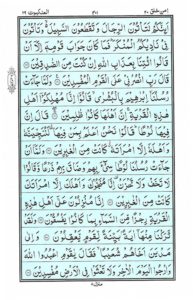 العنكبوت ٢٩ ٤٠١ امن خلق ٢٠
اَئِنَّكُمْ لَتَاْتُوْنَ الرِّجَالَ وَتَقْطَعُوْنَ السَّبِيْلَ وَتَاْتُوْنَ
فِيْ نَادِيْكُمُ الْمُنْكَرَ فَمَا كَانَ جَوَابَ قَوْمِهٖۤ اِلَّاۤ اَنْ
قَالُوا ائْتِنَا بِعَذَابِ اللّٰهِ اِنْ كُنْتَ مِنَ الصّٰدِقِيْنَ ۝
قَالَ رَبِّ انْصُرْنِيْ عَلَى الْقَوْمِ الْمُفْسِدِيْنَ ۝ وَلَمَّا جَآءَتْ
رُسُلُنَاۤ اِبْرٰهِيْمَ بِالْبُشْرٰى قَالُوْۤا اِنَّا مُهْلِكُوْۤا اَهْلِ
هٰذِهِ الْقَرْيَةِ اِنَّ اَهْلَهَا كَانُوْا ظٰلِمِيْنَ ۝ قَالَ اِنَّ
فِيْهَا لُوْطًا قَالُوْا نَحْنُ اَعْلَمُ بِمَنْ فِيْهَا لَنُنَجِّيَنَّهٗ
وَاَهْلَهٗۤ اِلَّا امْرَاَتَهٗ كَانَتْ مِنَ الْغٰبِرِيْنَ ۝ وَلَمَّاۤ اَنْ
جَآءَتْ رُسُلُنَا لُوْطًا سِيْٓءَ بِهِمْ وَضَاقَ بِهِمْ ذَرْعًا وَّقَالُوْا
لَا تَخَفْ وَلَا تَحْزَنْ اِنَّا مُنَجُّوْكَ وَاَهْلَكَ اِلَّا امْرَاَتَكَ
كَانَتْ مِنَ الْغٰبِرِيْنَ ۝ اِنَّا مُنْزِلُوْنَ عَلٰۤى اَهْلِ هٰذِهِ
الْقَرْيَةِ رِجْزًا مِّنَ السَّمَآءِ بِمَا كَانُوْا يَفْسُقُوْنَ ۝ وَلَقَدْ
تَّرَكْنَا مِنْهَاۤ اٰيَةً بَيِّنَةً لِّقَوْمٍ يَّعْقِلُوْنَ ۝ وَاِلٰى
مَدْيَنَ اَخَاهُمْ شُعَيْبًا فَقَالَ يٰقَوْمِ اعْبُدُوا اللّٰهَ
وَارْجُوا الْيَوْمَ الْاٰخِرَ وَلَا تَعْثَوْا فِي الْاَرْضِ مُفْسِدِيْنَ ۝
منزل٥